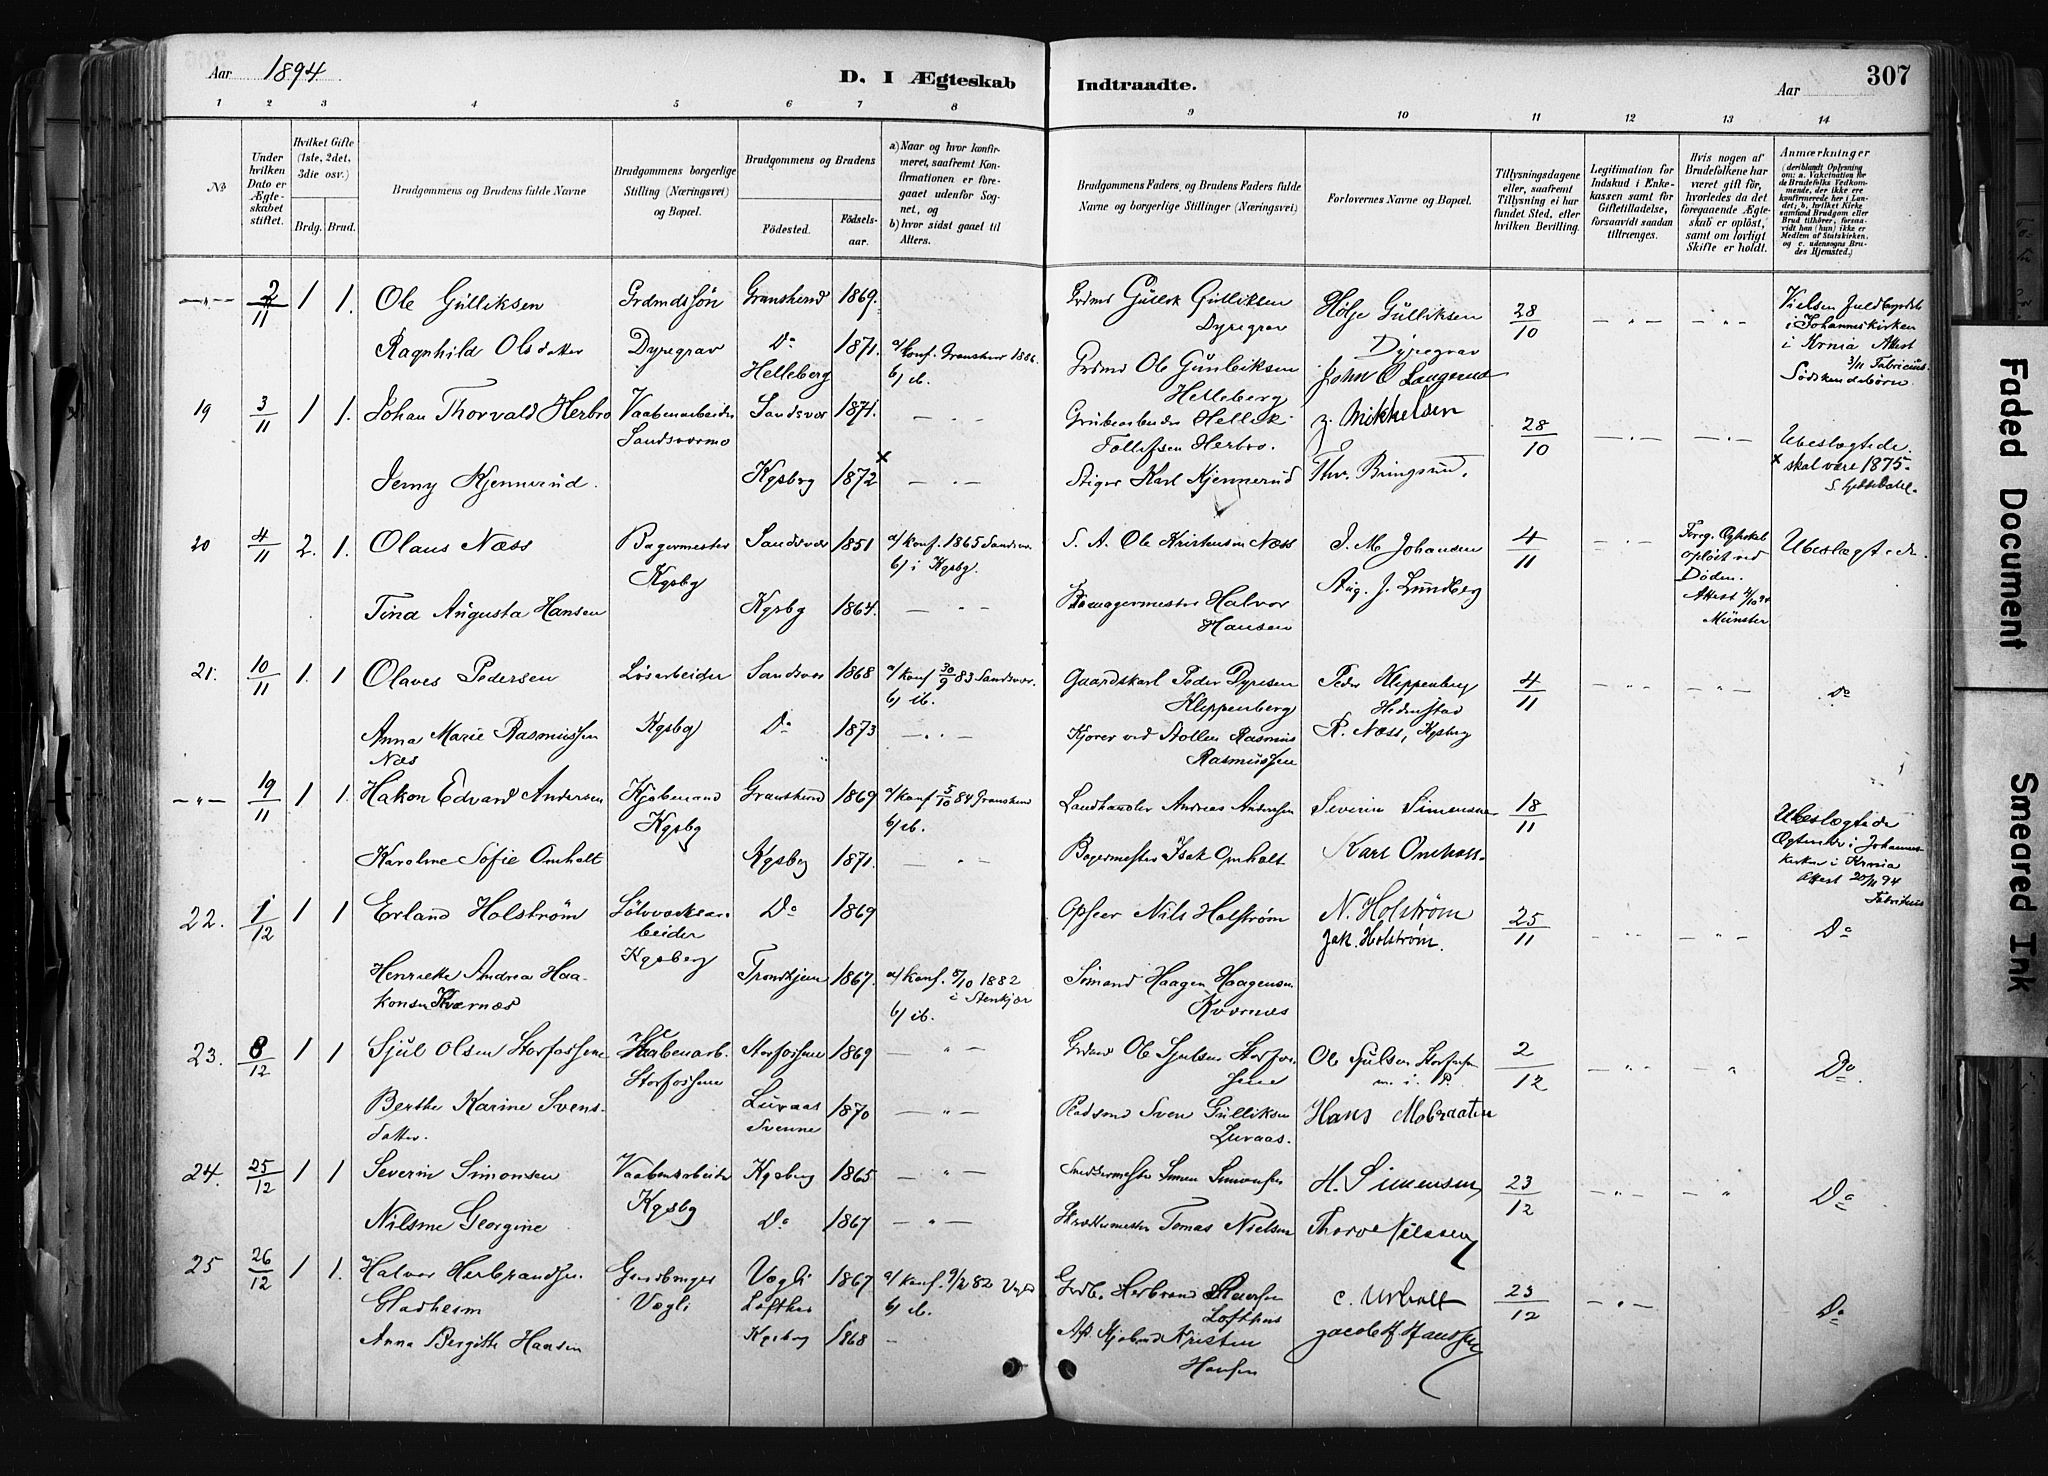 Aar 1894
D. I Ægteskab Indtraadte.
Aar
307
1 2 3 4 5 6 7 8 9 10 11 12 13 14
No
Under hvilken Dato er Ægteskabet stiftet.
Hvilket Gifte (1ste, 2det, 3die osv.)
Brdg. Brud.
Brudgommens og Brudens fulde Navne
Brudgommens borgerlige Stilling (Næringsvei) og Bopæl.
Brudgommens og Brudens
Fødested. Fødselsaar.
a) Naar og hvor konfirmeret, saafremt Konfirmationen er foregaaet udenfor Sognet, og
b) hvor sidst gaaet til Alters.
Brudgommens Faders, og Brudens Faders fulde Navne og borgerlige Stillinger (Næringsvei)
Forlovernes Navne og Bopæl.
Tillysningsdagene eller, saafremt Tillysning ei har fundet Sted, efter hvilken Bevilling.
Legitimation for Indskud i Enkekassen samt for Giftetilladelse, forsaavidt saadan tiltrænges.
Hvis nogen af Brudefolkene har været gift før, hvorledes da det foregaaende Ægteskab er opløst, samt om lovligt Skifte er holdt.
Anmærkninger
(deriblandt Oplysning om: a. Vakcination for de Brudefolks Vedkommende, der ikke ere konfirmerede her i Landet; b. hvilket Kirkesamfund Brudgom eller Brud tilhører, forsaavidt han (hun) ikke er Medlem af Statskirken, og c. udensogns Brudes Hjemsted.)
— " — 2/11 1 1. Ole Gulliksen Grdmdssøn Granshered 1869. Grdmd Gullik Gulliksen Dyregrav Hølje Gulliksen Dyregrav 28/10 — " — — " — Vielsen fuldbyrdet i Johanneskirken i Krnia Attest 3/11 Fabricius. Sødskendebørn
Ragnhild Olsdatter Dyregrav Do Helleberg 1871. a/ konf. Granshered 1886 b/ ib. Grdmd Ole Gunleiksen Helleberg John O Langerud
19 3/11 1 1. Johan Thorvald Herbro Vaabenarbeider Sandsværmo Sandsvær 1871. — " — Grubearbeider Hellek Tollefsen Herbro. Mikkelsen 28/10 — " — — " — Ubeslægtede. x skal være 1875.
Jenny Kjennerud. Kgsbrg 1872 x — " — Stiger Karl Kjennerud Thv. Bringsrud.
20 4/11 2. 1. Olaus Næss Bagermester Kgsbg Sandsvær 1851 a/ konf. 1865 Sandsvær. b/ i Kgsbg. S. A. Ole Kristensen Næss J. M. Johansen 4/11 — " — Foreg. Ægteskab opløst ved Døden. Attest 4/10 94 Münster Ubeslægtede.
Tina Augusta Hansen Kgsbg 1864. — " — Bomagermester Halvor Hansen Aug. J. Lundberg
21. 10/11 1. 1 Olaves Pedersen Løsarbeider Kgsbg Sandsvær 1868 a/ konf 30/9 83 Sandsvær. b/ ib. Gaardskarl Peder Dyresen Kleppenberg Peder Kleppenberg Hedenstad 4/11 — " — — " — Do
Anna Marie Rasmussen Næs Do 1873 — " — Kjører ved Stollen Rasmus Rasmussen R. Næss, Kgsberg
— " — 19/11 1 1. Hakon Edvard Andersen Kjøbmand Kgsbg Granshered 1869 a/ konf 5/10 84 Granshered b/ ib. Landhandler Andreas Andersen Severin Simensen 18/11 Ubeslægtede Ægteviet i Johanneskirken i Krnia Attest 20/11 94 Fabricius
Karoline Sofie Omholt Kgsberg 1871. — " — Bagermester Isak Omholt Karl Omholt.
22. 1/12 1 1 Erland Holstrøm Sølvværksarbeider Kgsberg Do 1869 Opseer Nils Holstrøm N. Holstrøm Jak. Holstrøm. 25/11 — " — — " — Do
Henrieke Andrea Haakonsen Kværnæs Trondhjem 1867. a/ konf. 8/10 1882 i Stenkjær b/ ib. Sømand Haagen Haagensen Kværnæs
23. 8/12 1 1 Sjul Olsen Storfossene Vaabenarb. Storfossene Storfossene 1869 — " — Grdmd Ole Sjulsen Storfossene Ole Sjulsen Storfossen m. i. P. 2/12 — " — — " Do.
Berthe Karine Svensdatter. Luraas Svenne 1870 — " — Pladsmd Sven Gulliksen Luraas. Hans Mobraaten
24. 25/12 1 1 Severin Simonsen Vaabenarbeider Kgsbg Kgsberg 1865 — " — Snedkermester Simen Simensen H. Simensen 23/12 — " — — " Do
Nilsine Georgine Do 1867 — " — Skræddermester Tomas Nielsen Thorv Nilssen
25 26/12 1 1. Halvor Herbrandsen Gladheim Gaardbruger Vægli Vægli Lofthus 1867. a/ konf. 9/2 82 Vægli b/ ib. Grdb. Herbrand Lofthus C. Urholt 23/12 — " — Do
Anna Bergitte Hansen Kgsberg 1868 — Afd. Kjøbmd Kristen Hansen Jacob H Hanssen
Faded Document
Smeared Ink